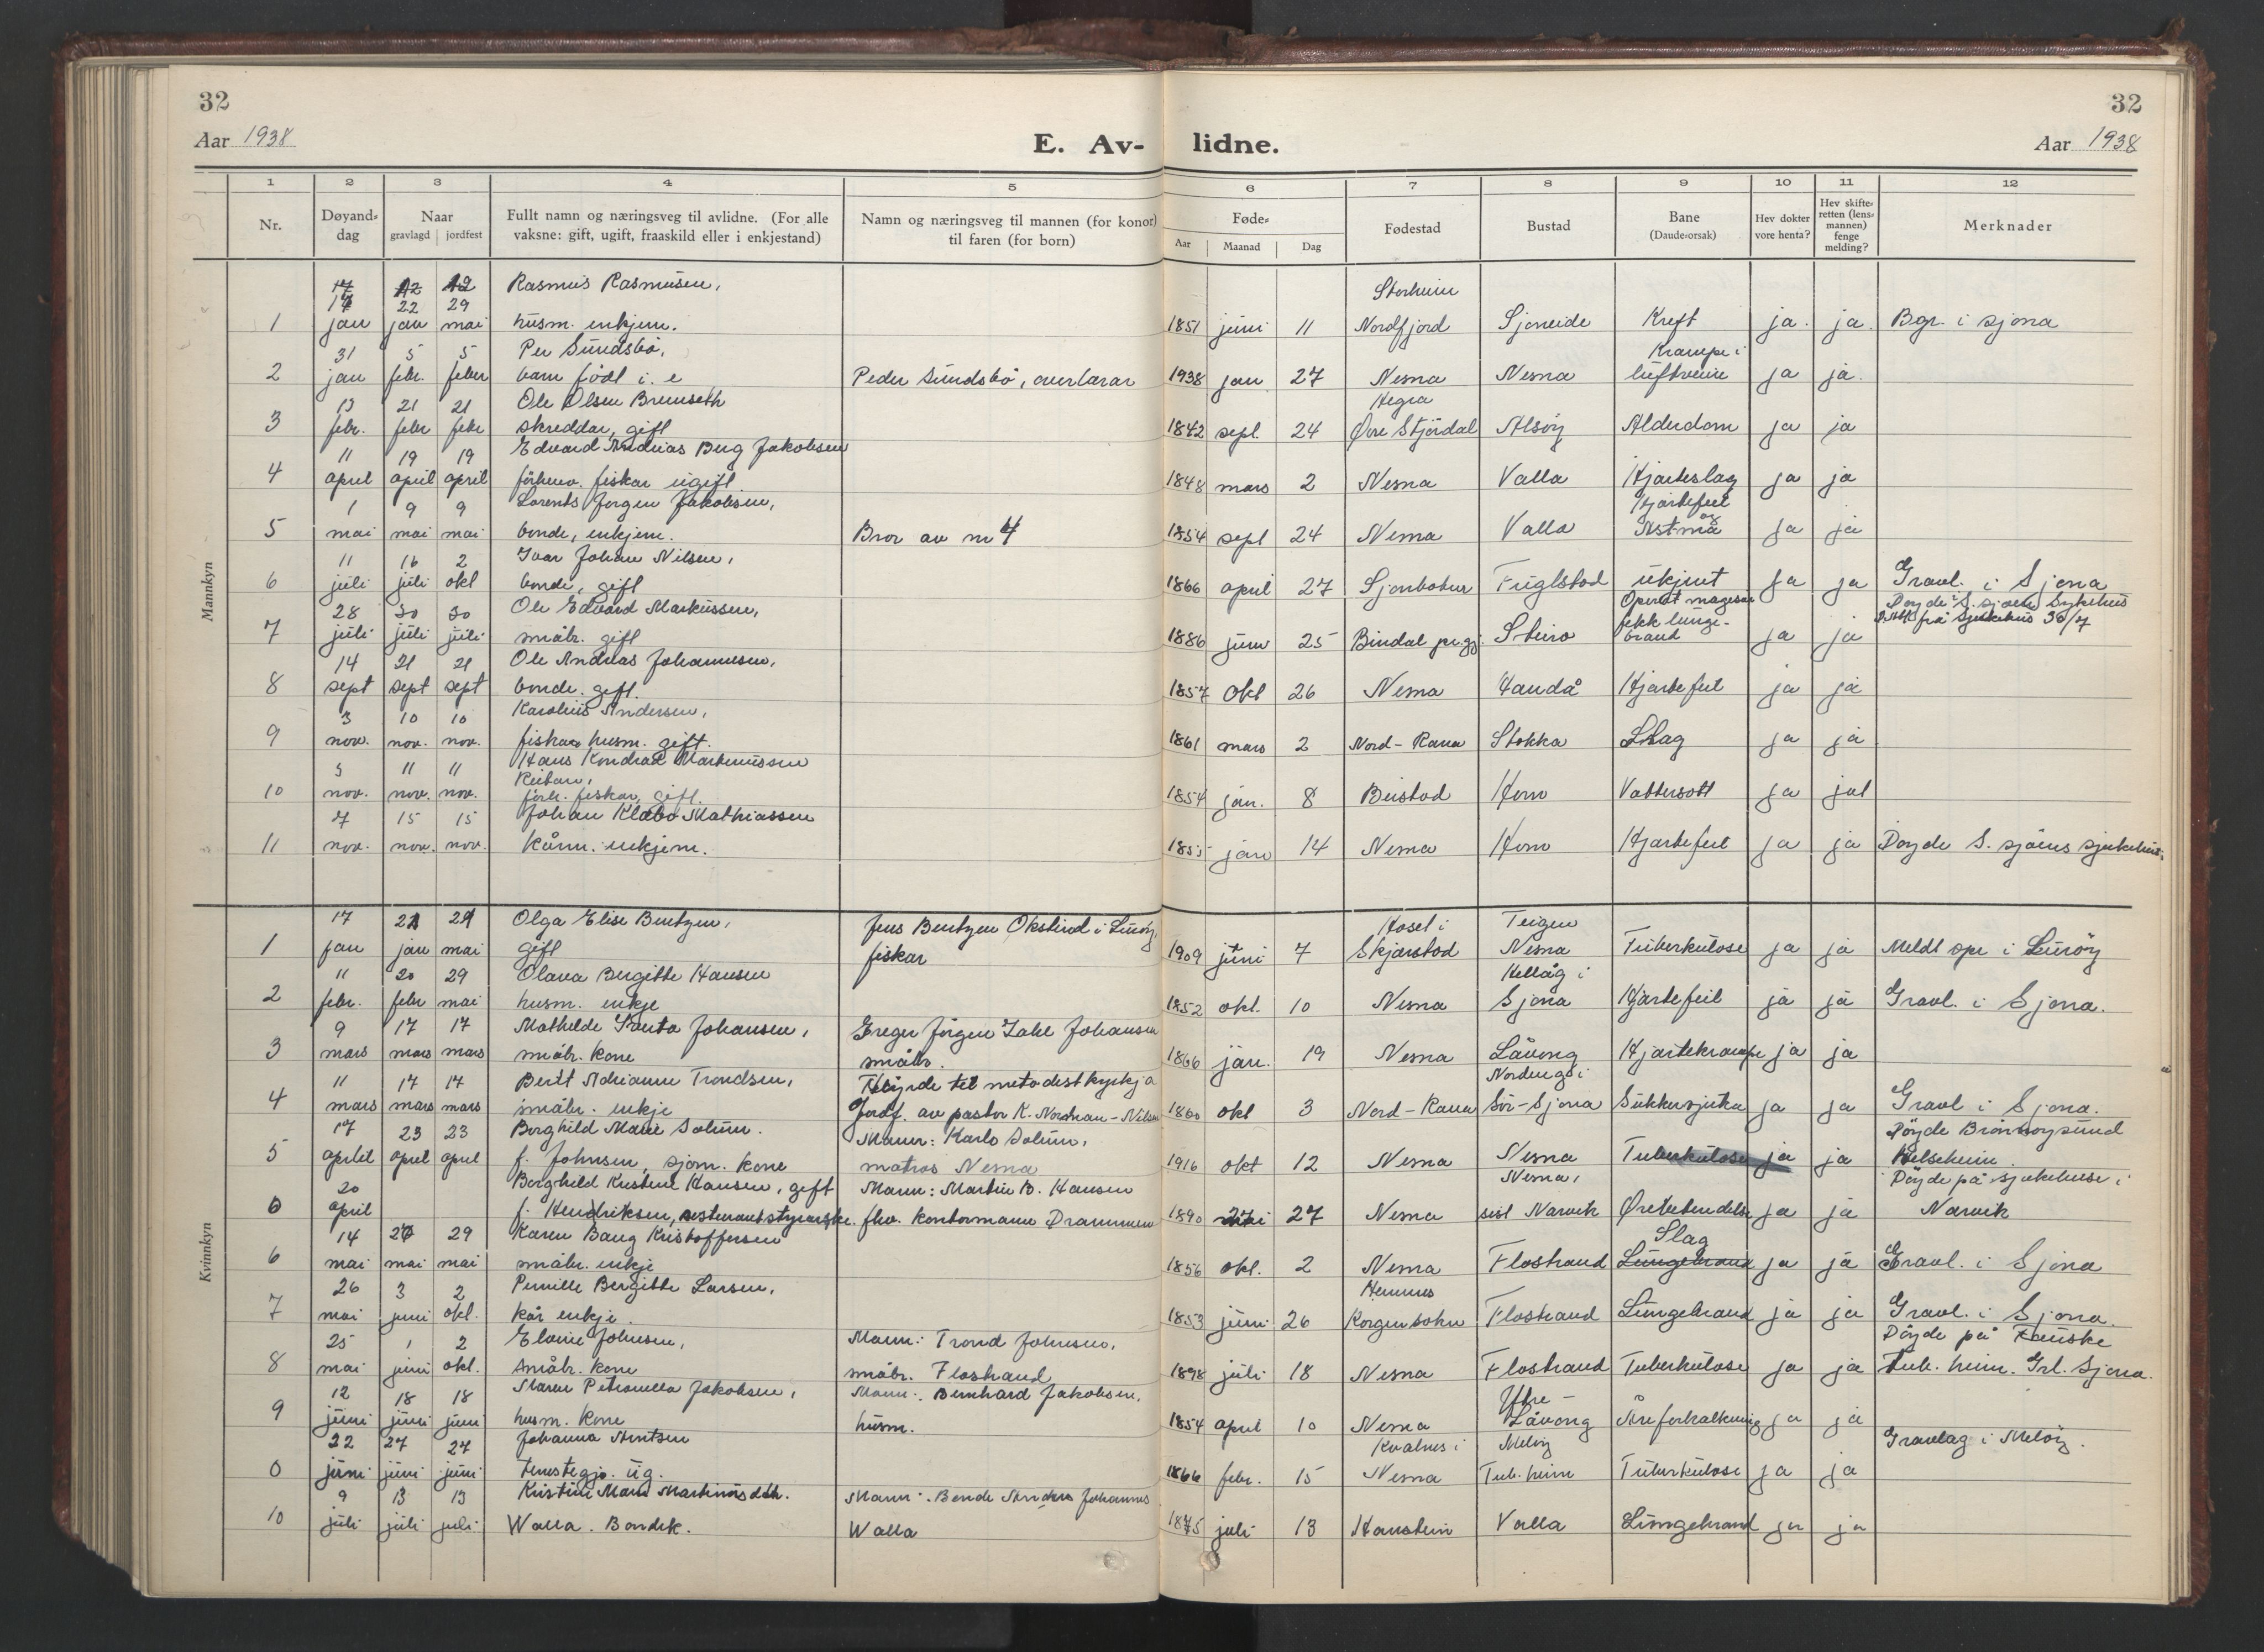 32
32
Aar 1938
E. Av-
lidne.
Aar 1938
1 2 3 4 5 6 7 8 9 10 11 12
Nr.
Døyand-
dag
Naar
gravlagd jordfest
Fullt namn og næringsveg til avlidne. (For alle
vaksne: gift, ugift, fraaskild eller i enkjestand)
Namn og næringsveg til mannen (for konor)
til faren (for born)
Føde-
Aar Maanad Dag
Fødestad
Bustad
Bane
(Daude-orsak)
Hev dokter
vore henta?
Hev skifte-
retten (lens-
mannen)
fenge
melding?
Merknader
Mannkyn
17 12 12 Rasmus Rasmusen, Storheim
17 22 29
1 jan jan mai husm. enkjem. 1851 juni 11 Nordfjord Sjoneide Kreft ja. ja. Bgr. i Sjona
31 5 5 Per Sundsbø, Krampe i
2 jan febr. feber barn född i. e Peder Sundsbö, overlærar 1938 jan 27 Nesna Nesna luftveiene ja ja.
13 21 21 Ole Olsen Bremseth Hegra
3 febr. febr febr skreddar, gift 1842 sept. 24 Øvre Stjördal Alsöy Alderdom ja ja
11 19 19 Edvard Andreas Berg Jakobsen
4 april april april förhenv. fiskar ugift 1848 mars 2 Nesna Valla Hjarteslag ja ja
1 9 9 Lorents Jørgen Jakobsen, Hjartefeil
5 mai mai mai bonde, enkjem. Bror av nr 4 1854 sept 24 Nesna Valla og Astma ja ja
11 16 2 Ivar Johan Nilsen,
6 juli juli okt bonde, gift 1866 april 27 Sjonbotn Fuglstad ukjent ja ja Gravl. i Sjona
28 30 30 Ole Edvard Markussen, Operert magesår Døyde S. sjöens Sykehus
7 juli juli juli småbr. gift 1886 juni 25 Bindal pr.gj. Steiro fekk lunge-brand ja ja frå sjukehus 30/7
14 21 21 Ole Andreas Johannesen,
8 sept sept sept bonde. gift. 1857 okt 26 Nesna Handå Hjartefeil ja ja
3 10 10 Karolius Andersen,
9 nov. nov. nov. fiskar husm. gift. 1861 mars 2 Nord-Rana Stokka Slag ja ja
3 11 11 Hans Kondrad Martinussen
Reitan,
10 nov. nov. nov. förh. fiskar, gift. 1854 jan. 8 Beistad Hom Vattersott ja ja
7 15 15 Johan Klæbo Mathiassen
11 nov. nov. nov. kårm. enkjem. 1855 jan 14 Nesna Hom Hjartefeil ja ja Döyde S. sjöens sjukehus.
Kvinnkyn
17 21 29 Olga Elise Bentzen, Jens Bentzen Okstind i Luröy, Hosel i Teigen
1 jan jan mai gift fiskar 1909 juni 7 Skjerstad Nesna Tuberkulose ja ja Meldt opr i Luröy
11 20 29 Olava Bergitte Hansen Hellåg i
2 febr. febr mai husm. enkje 1852 okt. 10 Nesna Sjona Hjartefeil ja ja Gravl. i Sjona.
9 17 17 Mathilde Johansen, Greger Jörgen Johansen
3 mars mars mars småbr. kone småbr. 1866 jan. 19 Nesna Låvong Hjartekrampe ja ja
11 17 17 Berit Adrianne Trondsen, Höyrde til metodistkyrkja Nordeng i
4 mars mars mars småbr. enkje Jordf. av pastor K. Nordman-Nilsen 1860 okt 3 Nord-Rana Sör-Sjona Sukkersjuka ja ja Gravl i Sjona.
17 23 23 Borghild Marie Solum. Mann: Karlo Solum, Döyde Brönnöysund
5 april april april f. Johnsen, sjom. kone matros Nesna 1916 okt 12 Nesna Nesna Tuberkulose ja ja Helseheim.
20 Borghild Kristine Hansen, gift Mann: Martin B. Hansen Nesna, Döyde på sjukehuset i
0 april f. Hendriksen, restaurantstyrarske. fhv. kontormann Drammen 1890 mai 27 Nesna sist Narvik Örebetendelse ja ja Narvik
14 20 29 Karen Baug Kristoffersen Slag
6 mai mai mai småbr. enkje 1856 okt. 2 Nesna Flostrand Lungebrand ja ja Gravl. i Sjona
26 3 2 Pernille Bergitte Larsen, Hemnes
7 mai juni okt. kår enkje. 1853 juni 26 Korgen sokn Flostrand Lungebrand ja ja Gravl. i Sjona.
25 1 2 Elvine Johnsen, Mann: Trond Johnsen, Döyde på Fauske
8 mai juni okt. småbr. kone småbr. Flostrand 1898 juli 18 Nesna Flostrand Tuberkulose ja ja Tub. heim. Grl. Sjona.
12 18 18 Maren Petronella Jakobsen, Mann: Bernhard Jakobsen, Ytre-
9 juni juni juni husm. kone husm. 1854 april 10 Nesna Låvong Åreforkalkning ja ja
22 27 27 Johanna Arntsen Kvalnes i Melöy Gravlag i Melöy.
0 juni juni juni tenestegj. ug. 1866 febr. 15 Nesna Tub. heim Tuberkulose ja ja
9 13 13 Kristine Marie Martinusdtr. Mann: Bonde Anders Johannes
10 juli juli juli Walla. Bondek. Walla 1875 juli 13 Hanstein Valla Lungebrand ja ja